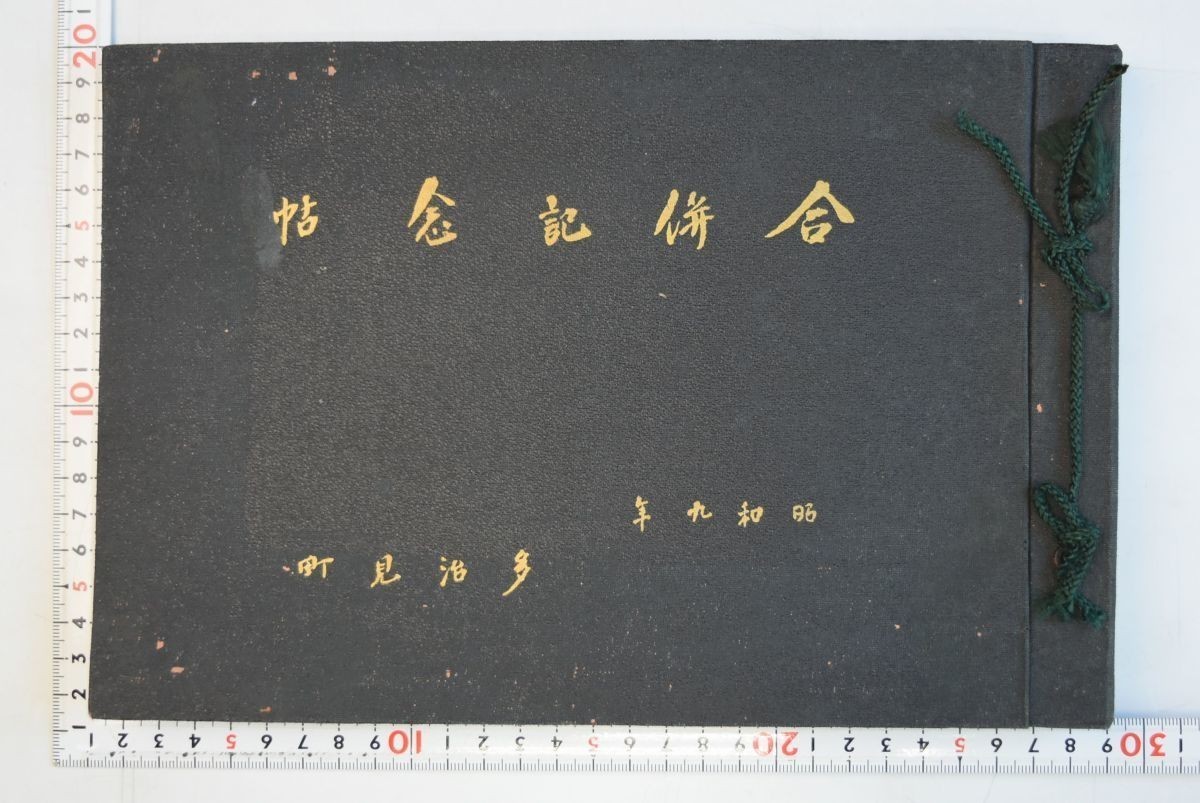 合併記念帖
昭和九年
多治見町
20
9
8
7
6
5
4
3
2
1
10
9
8
7
6
5
4
3
2
1
1 2 3 4 5 6 7 8 9 10 1 2 3 4 5 6 7 8 9 20 1 2 3 4 5 6 7 8 9 30 1